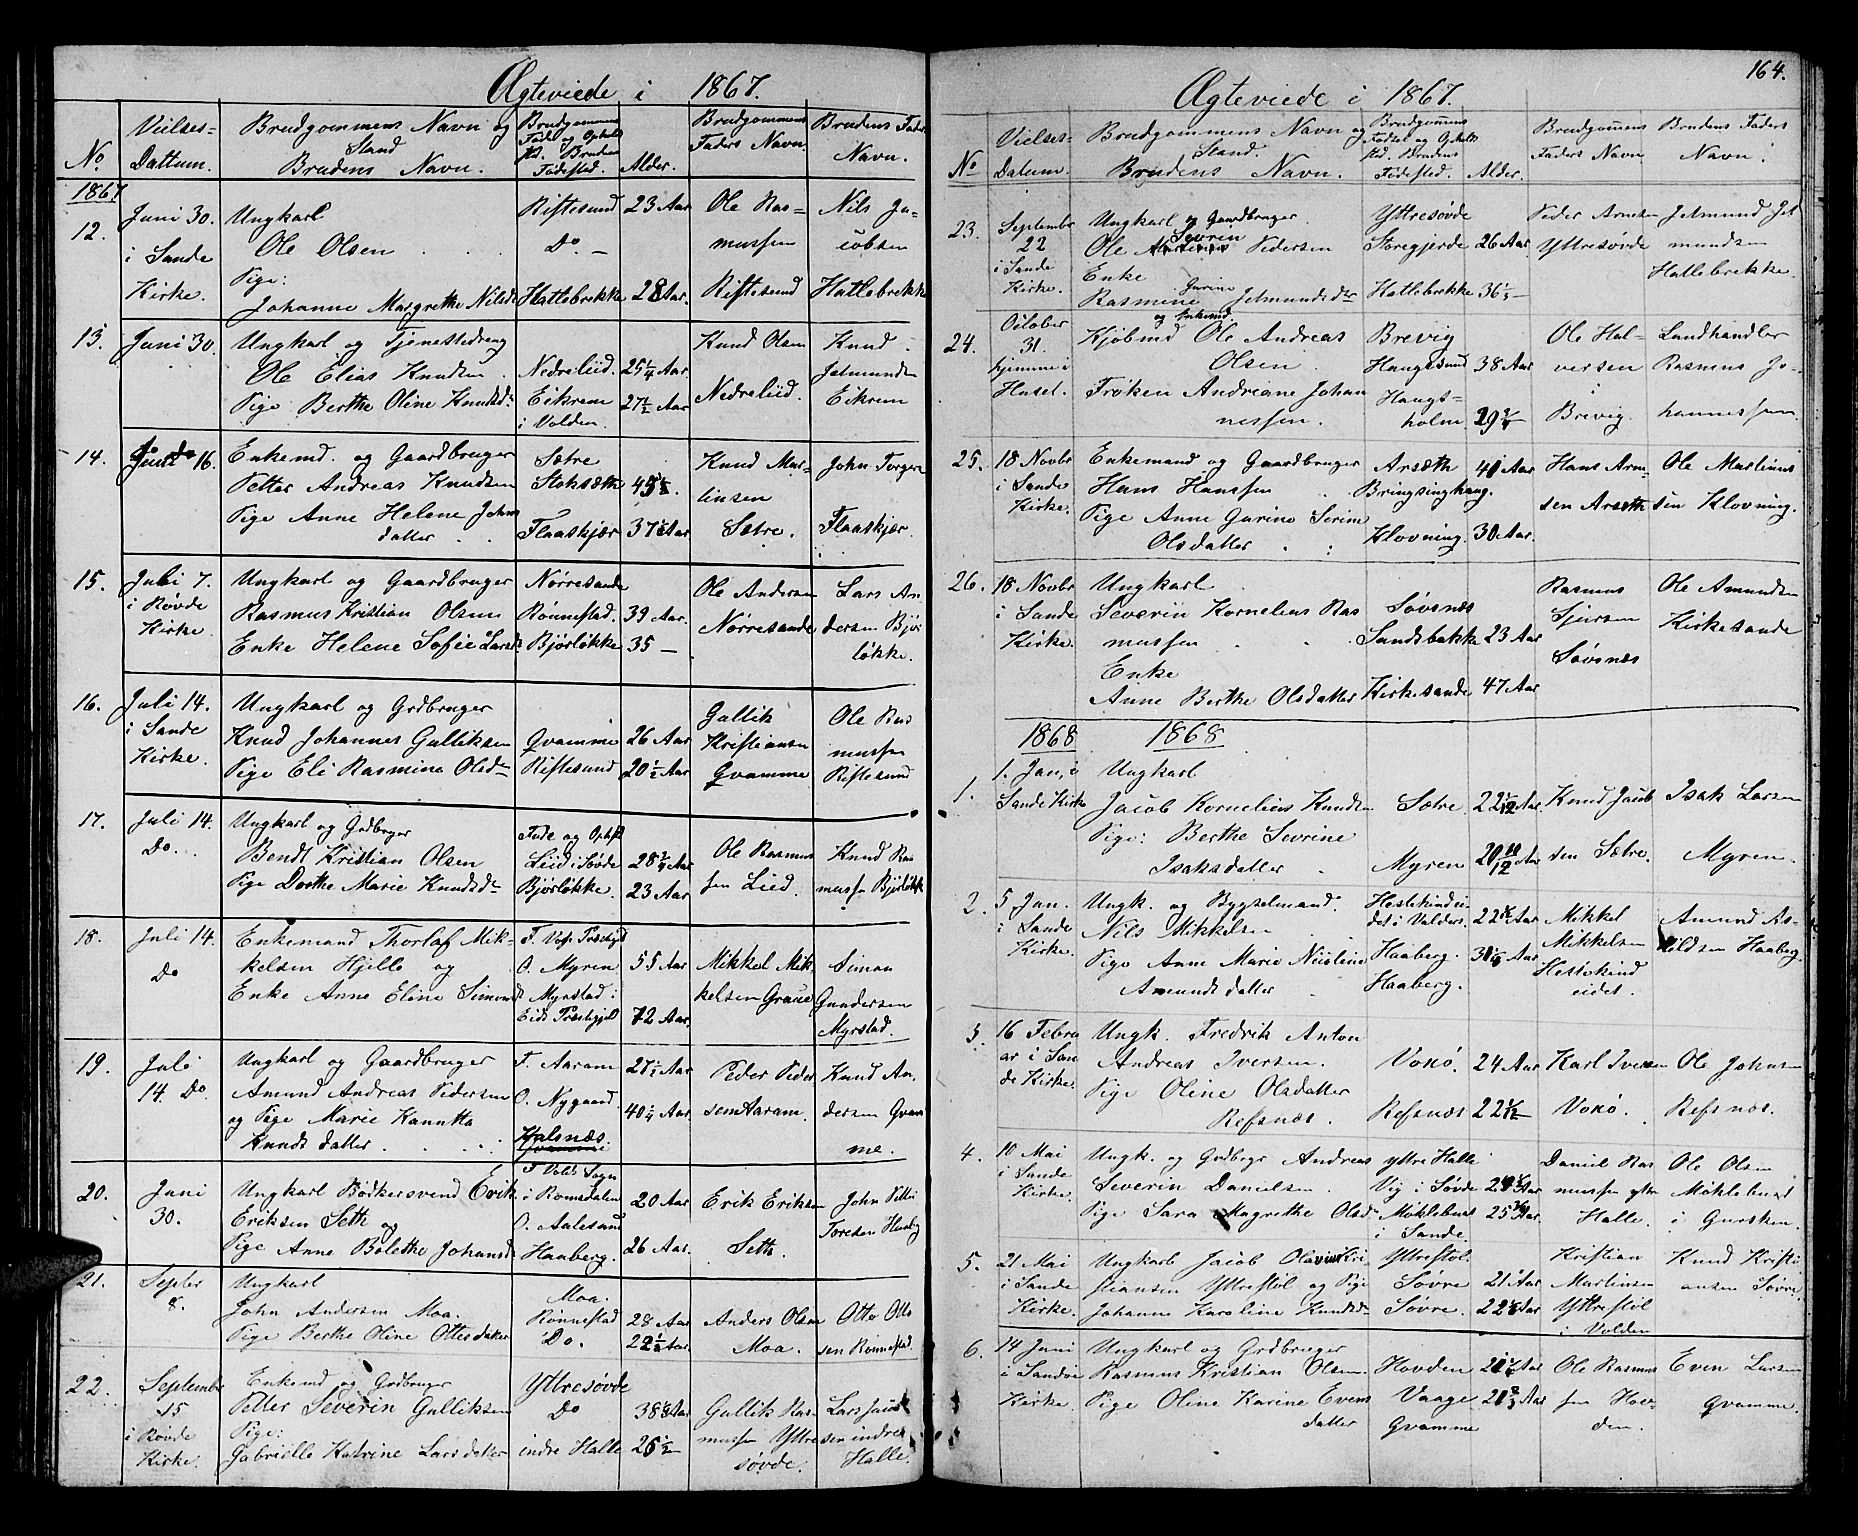 Ægteviede i 1867.
No
Vielses-
Dattum.
Brudgommens Navn og
Stand
Brudens Navn.
Brudgommens
Føde og Opholds
st. Brudens
Fødested.
Alder.
Brudgommens
Faders Navn.
Brudens Faders
Navn.
1867
12.
Juni 30.
i Sande
Kirke.
Ungkarl
Ole Olsen
Pige:
Johanne Margrethe Nilsdr
Riftesund
Do
Hatlebrekke
23 Aar
28 Aar.
Ole Ras-
mussen
Riftesund
Nils Ja-
cobsen
Hatlebrekk
13.
Juni 30.
Ungkarl og Tjenestedreng
Ole Elias Knudsen
Pige Berthe Oline Knudsdr
Nedreliid.
Eikrem
i Volden.
25 1/4 Aar.
27 1/2 Aar
Knud Olsen
Nedreliid.
Knud
Jetmundsen
Eikrem
14.
16.
Enkemd. og Gaardbruger
Petter Andreas Knudsen
Pige Anne Helene Johns
datter
Sætre
Stoksæth
Flaaskjær
45 1/2.
37 1/2 Aar
Knud Mar-
tinsen
Sætre.
John Torger
Flaaskjær.
15.
Juli 7.
i Røvde
Kirke.
Ungkarl og Gaardbruger
Rasmus Kristian Olsen
Enke Helene Sofie Larsd
Nørresande
Rønnestad.
Bjørløkke
39 Aar.
35 —
Ole Andersen
Nørresande
Lars An
dersen Bjør
løkke.
16.
Juli 14.
i Sande
Kirke.
Ungkarl og Grdbruger
Knud Johannes Gulliksen
Pige Eli Rasmine Olsd
Qvamme
Riftesund
26 Aar
20 1/2 Aar
Gullik
Kristiansen
Qvamme
Ole Ras
mussen
Riftesund
17.
Juli 14.
Do.
Ungkarl og Grdbrger
Bendt Kristian Olsen
Pige Dorthe Marie Knudsdr
Føde og Ophst
Liid i Søvde
Bjørløkke.
28 3/4 Aar
23 Aar
Ole Rasmus
sen Liid.
Knud Ras
mussen Bjørløkk
18.
Juli 14.
Do
Enkemand Thorlaf Mik-
kelsen Hjelle og
Enke Anne Eline Simonsd
F. Præstegjd
O. Myren
Myrstad i
Eids Præstegjel
55 Aar
72 Aar.
Mikkel Mik
kelsen
Simon
Gundersen
Myrstad.
19.
Juli
14. Do
Ungkarl og Gaardbruger
Amund Andreas Pedersen
og Pige Marie Kanutta
Knudsdatter
F. Aaram
O. Nygaard
Kalsnæs.
Qvamme
27 1/2 Aar
40 1/4 Aar.
Peder Peder
sen Aaram
Knud An
dersen Qvam
me.
20.
Juni
30.
Ungkarl Bødkersvend Erik
Eriksen Seth og
Pige Anne Bolethe Johansd
F. Volds Sogn
i Romsdalen
O. Aalesund
Haaberg.
20 Aar
26 Aar.
Erik Eriksen
Seth
John Petter
21.
Septbr
8.
Ungkarl
John Andersen Moa.
Pige Berthe Oline Ottesdatter
Moa.
Rønnestad
Do.
28 Aar
22 1/2 Aar.
Anders Olsen
Moa.
Otto Otto
sen Rønnestad.
22.
September
15
i Røvde
Kirke.
Enkemd og Grdbruger
Petter Severin Gulliksen
Pige:
Gabrielle Katrine Larsdatter
Yttresøvde
Do
indre Halle
38 Aar
26 1/2 —
Gullik Ras-
mussen Yttre
søvde.
Lars Jacob
sen indre
Halle.
164.
Ægteviede i 1867.
No
Vielses-
Datum.
Brudgommens Navn og
Stand.
Brudens Navn.
Brudgommens
Fødsel og Opholds
sted. Brudens
Fødested.
Alder.
Brudgommens
Faders Navn
Brudens Faders
Navn.
23.
Septembr
22
i Sande
Kirke.
Ungkarl og Gaardbruger.
Severin
Ole Martinus Pedersen
Enke
Gurine
Rasmine Jetmundsdr
Yttresøvde
Storegjerde
Hatlebrekke
26 Aar
36 1/2 —
Peder Arnesen
Yttresøvde
Jetmund Jet
mundsen
Hatlebrekke.
24.
October
31.
hjemme i
Huset.
og Enkemd.
Kjøbmd Ole Andreas
Olsen
Frøken Andriane Johan
nessen.
Brevig
Haugesund
Haugs-
holm
38 Aar
29 3/4
Ole Hal-
versen
Brevig.
Landhandler
Rasmus Jo-
hannessen
25.
18 Novbr
i Sande
Kirke.
Enkemand og Gaardbruger
Hans Hansen
Pige Anne Gurine Serine
Olsdatter
Arsæth
Bringsinghaug.
Klovning.
41 Aar
30 Aar.
Hans Arn-
sen Arsæth
Ole Martinus
sen Klovning.
26.
18 Novbr
i Sande
Kirke.
Ungkarl
Severin Kornelius Ras
mussen
Enke
Anne Berthe Olsdatter
Søvsnæs
Sandsbakke
Kirkesande
23 Aar
47 Aar
Rasmus
Sjursen
Søvsnæs
Ole Amundsen
Kirkesande
1868
1868
1.
1. Jan, i
Sande Kirke
Ungkarl
Jacob Kornelius Knudsen
Pige: Berthe Sevrine
Isaksdatter
Sætre
Myren
22 Aar
20 10/12 Aar
Knud Jacob
sen Sætre.
Isak Larsen
Myren.
2.
5 Jan.
i Sande
Kirke.
Ungk. og Bygselmand.
Nils Mikkelsen
Pige Anne Marie Nicoline
Amundsdatter
Hestekindei
det i Valders
Haaberg.
Haaberg.
22 Aar
31 Aar
Mikkel
Mikkelsen
Hestekind
eidet.
Amund As-
kildsen Haaberg.
3.
16 Febru
ar i San
de Kirke.
Ungk. Fredrik Anton
Andreas Iversen.
Pige Oline Olsdatter
Refsnæs.
Voxø.
Refsnæs
24 Aar
22 1/2
Karl Iversen
Voxø.
Ole Johnsen
Refsnæs.
4.
10 Mai
i Sande
Kirke.
Ungk. og Grdbrgr Andreas
Severin Danielsen.
Pige Sara Magrethe Olsd
yttre Halle
Vig i Søvde
Møklebust
i Sande.
24 Aar
25 Aar.
Daniel Ras
mussen yttre
Halle.
Ole Olsen
Møklebust
i Gursken.
5.
21 Mai
i Sande
Kirke.
Ungkarl Jacob Olavius Kri
stiansen Yttrestøl og Pige
Johanne Karoline Knudsd
Yttrestøl.
Søvre
Søvre.
21 Aar
22 Aar
Kristian
Martinsen
Yttrestøl
i Volden
Knud Kristi
ansen Søvre.
6.
14 Juni
i Sande
Kirke.
Ungkarl og Grdbruger
Rasmus Kristian Olsen
Pige Oline Karine Evens
datter
Hovden
Vaage
Qvamme
21 Aar
21 Aar
Ole Rasmus
sen Hov-
den.
Even Larsen
Qvamme.